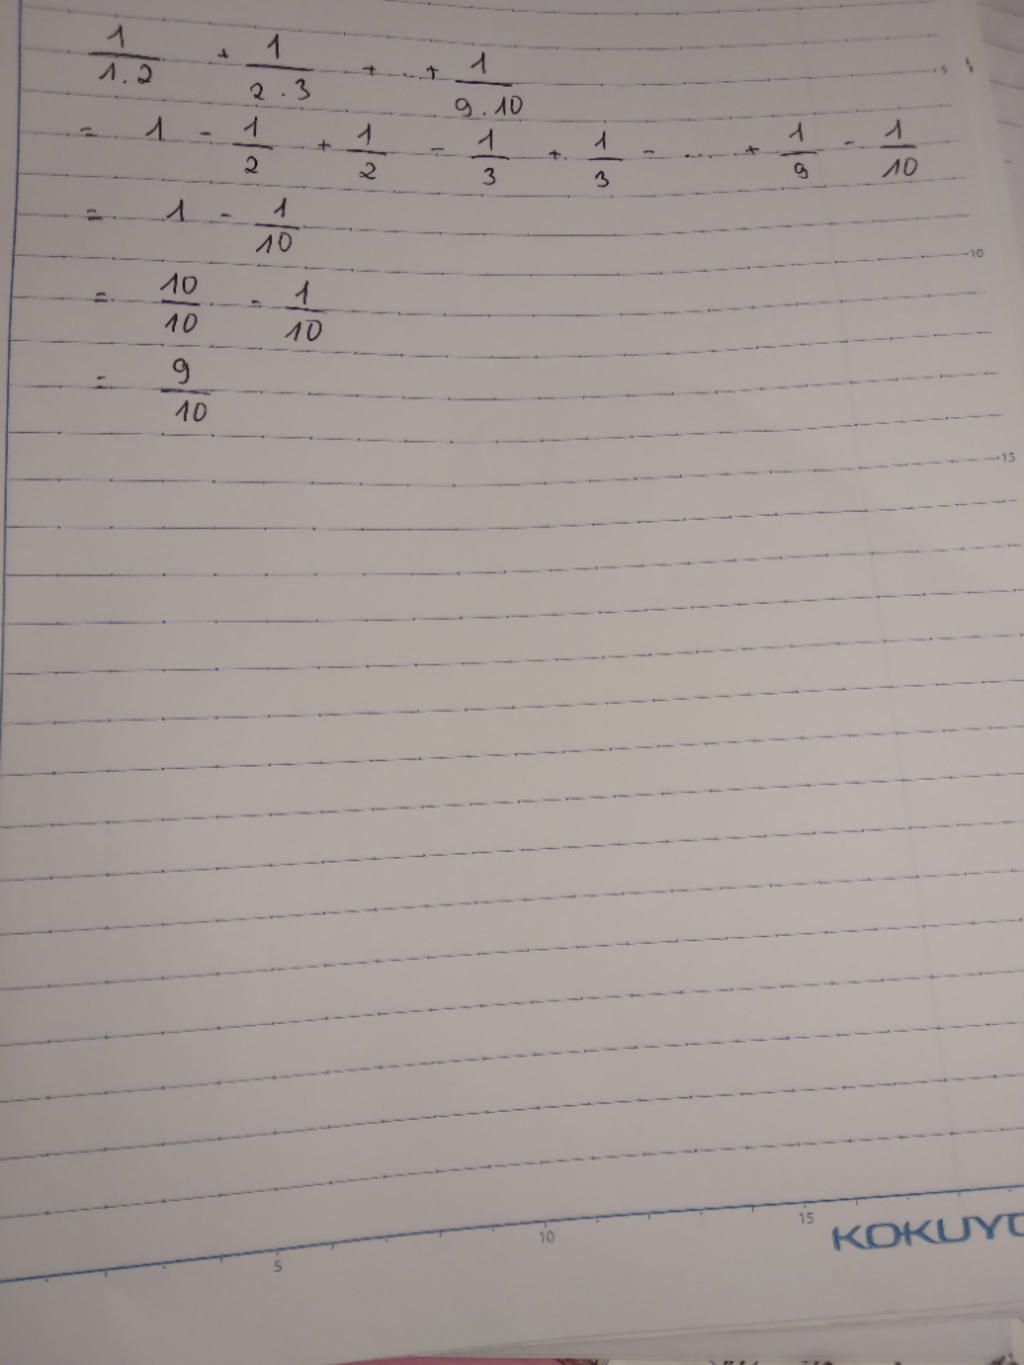 1/1.2 + 1/2.3 + ... + 1/9.10
= 1 - 1/2 + 1/2 - 1/3 + 1/3 - .... + 1/9 - 1/10
= 1 - 1/10
= 10/10 - 1/10
= 9/10
5
10
15
5 10 15
KOKUYO